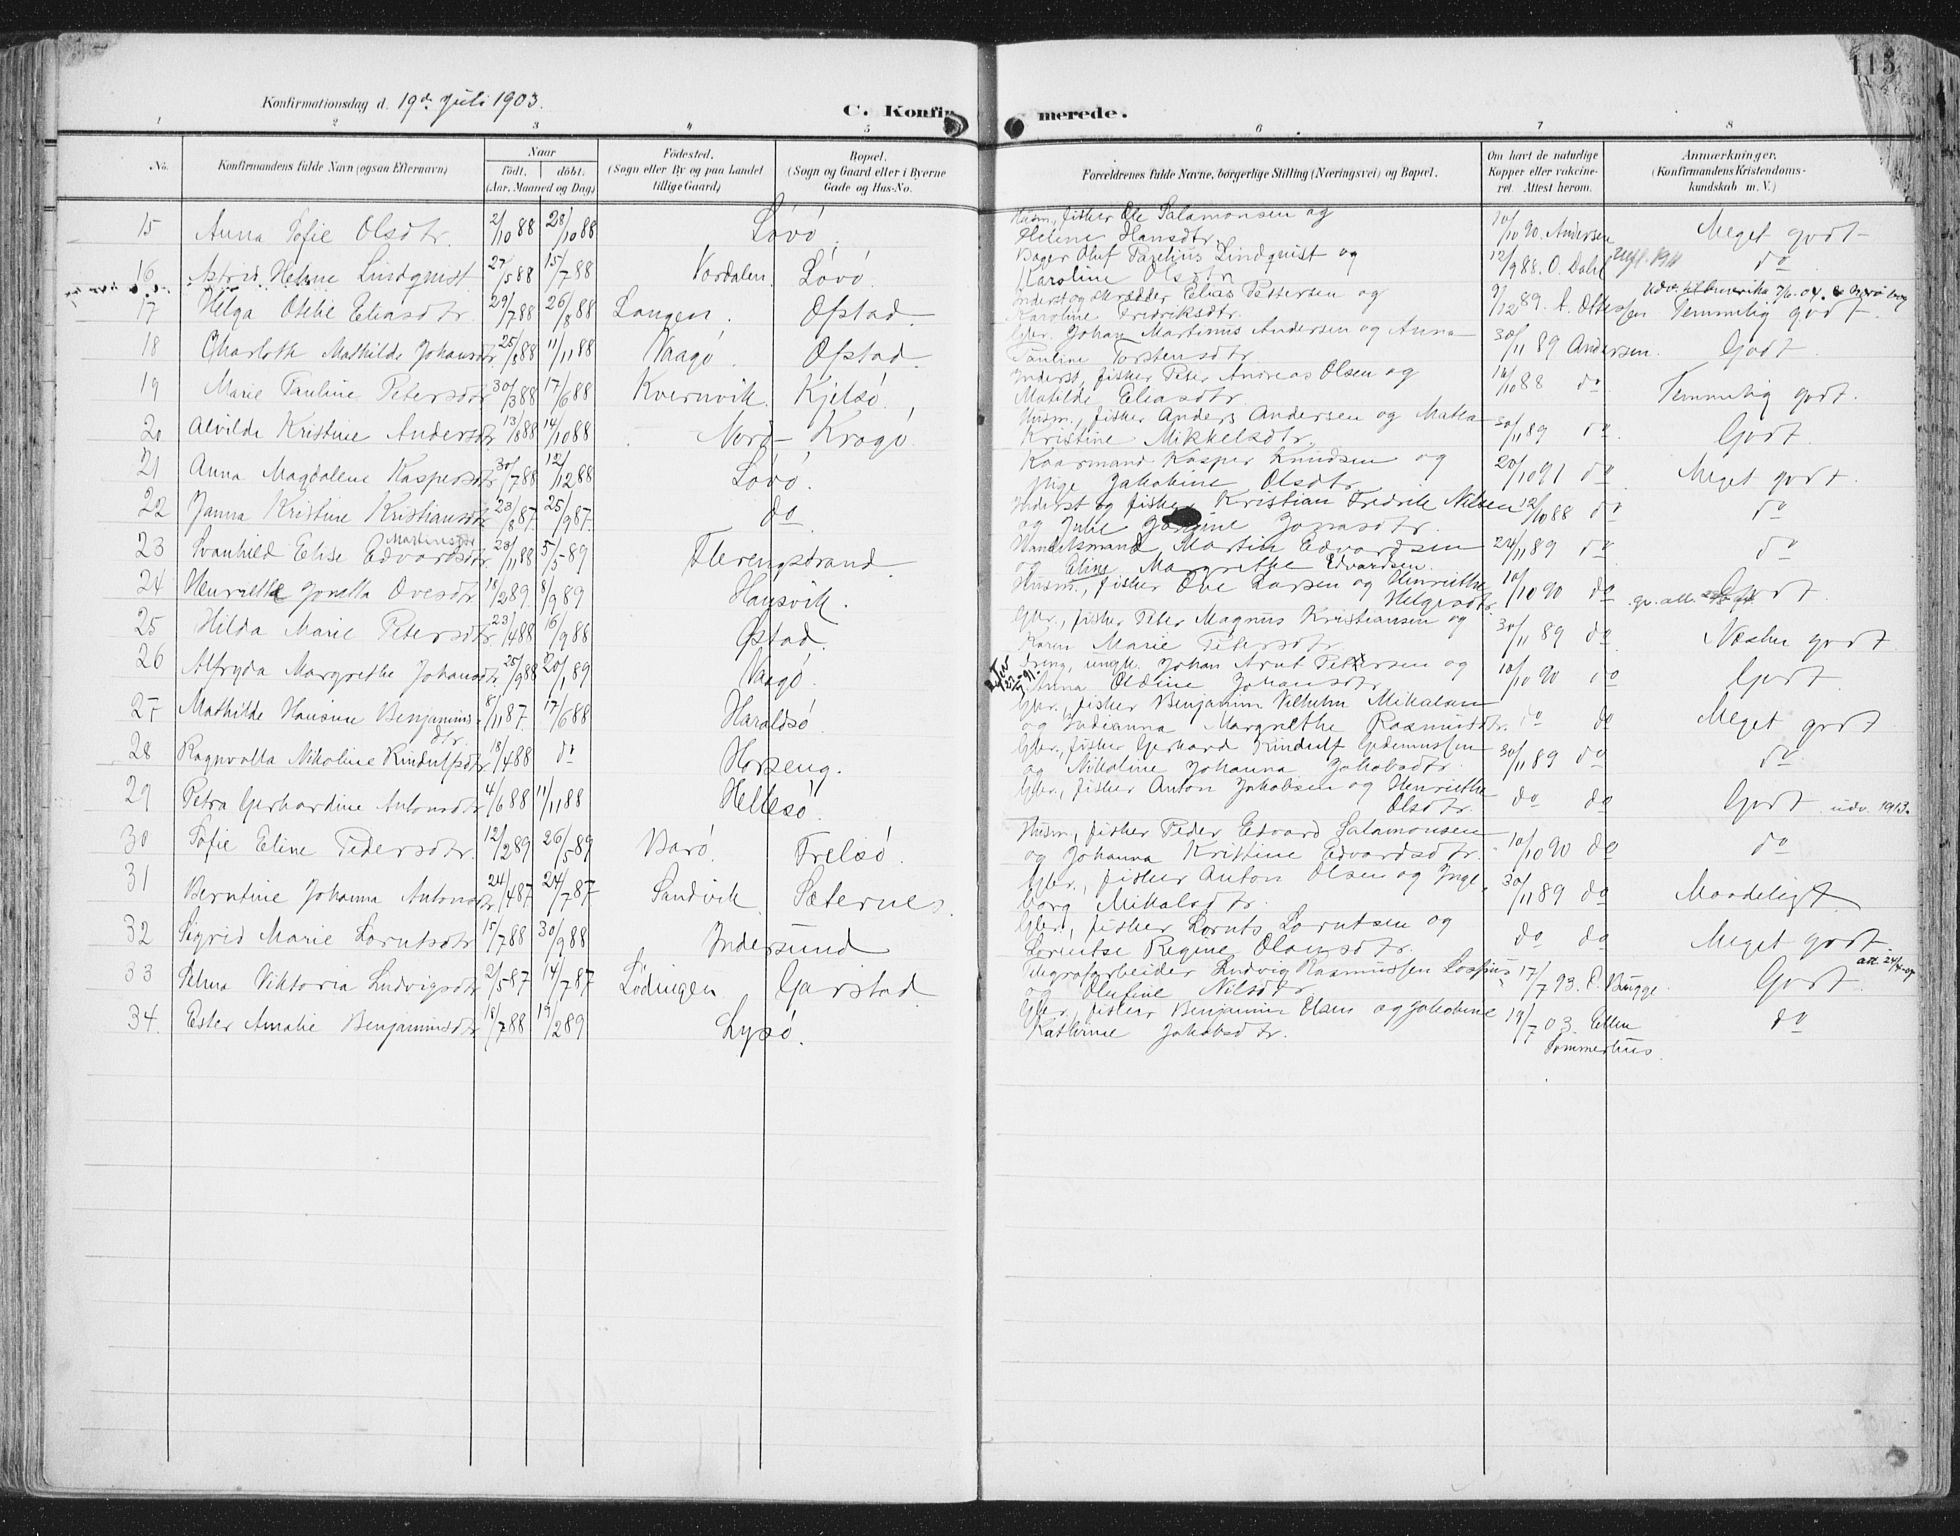 115
Konfirmationsdag d. 19de Juli 1903.
C. Konfirmerede.
1 2 3 4 5 6 7 8
No. Konfirmandens fulde Navn (ogsaa Efternavn) Naar Födt. döbt. (Aar. Maaned og Dag) Födested. (Sogn eller By og paa Landet tillige Gaard) Bopæl. (Sogn og Gaard eller i Byerne Gade og Hus-No. Forældrenes fulde Navne, borgerlige Stilling (Næringsvei) og Bopæl. Om havt de naturlige Kopper eller vaccineret. Attest herom. Anmærkninger. (Konfirmandens Kristendomskundskab m. V.)
15 Anna Sofie Olsdtr. 2/10 88 28/10 88 Lövö. Husm., fisker Ole Salamonsen og Helene Hansdtr. 10/10 90. Andersen Meget godt
16 Astrid Helene Lindquist 27/5 88 15/7 88 Værdalen Lövö. Bager Oluf Parelius Lindquist og Karoline Olsdtr 12/9 88. O. Dahl do
17 Helga Otelie Eliasdtr. 29/7 88 26/8 88 Langen. Opstad. Inderst og skrædder Elias Pettersen og Karoline Fredriksdtr. 9/12 89. A. Ottessen Udv. til Amerika 7/6-04. Temmelig godt.
18 Charloth Mathilde Johansdtr 25/8 88 11/11 88 Vaagö. Opstad. Johan Martinus Andersen og Anna Pauline Torstensdtr 30/11 89 Andersen. Godt.
19 Marie Pauline Petersdtr 30/3 88 17/6 88 Kvernvik. Kjelsö. Inderst, fisker Peter Andreas Olsen og Matilde Eliasdtr. 16/10 88 do Temmelig godt.
20 Alvilde Kristine Andersdtr. 13/8 88 14/10 88 Nord-Kragö. Husm., fisker Anders Andersen og Kristine Mikkelsdtr. 30/11 89 do Godt.
21 Anna Magdalene Kaspersdtr 30/7 88 12/12 88 Lövö. Kaarmand Kasper Knudsen og Pige Jakobine Olsdtr. 20/10 91 do Meget godt.
22 Janna Kristine Kristiansdtr 23/8 87. 25/9 87. do Inderst og fisker Kristian Fredrik Nilsen og Julie Jonasdtr. 12/10 88 do do
23 Svanhild Elise Edvardsdtr Martinsdtr 28/11 88 5/5-89 Flerengstrand Martin Edvardsen og Eline Margrethe Edvardsen. 24/11 89 do do
24 Henriette Jonetta Ovesdtr 18/2 89. 8/9 89 Hansvik. Husm., fisker Ove Larsen og Henriethe Helgesdtr. 10/10 90 do Godt.
25 Hilda Marie Petersdtr. 23/4 88 16/9 88 Opstad. Gbr., fisker Peter Magnus Kristiansen og Karen Marie Petersdtr. 30/11 89 do Næsten godt
26 Alfryda Margrethe Johansdtr 25/9 88 20/1 89 Vaagö. Dreng, ungk. Johan Arnt Pettersen og Anna Oldine Johansdtr 10/10 90 do Godt.
27 Mathilde Hansine Benjaminsdtr. 8/11 87. 17/6 88 Haraldsö. Gbr., fisker Benjamin Vilhelm Mikalsen og Indianna Margrethe Rasmusdtr. do do Meget godt.
28 Ragnvalla Nikoline Rindulfsdtr 18/4 88 do Horseng. Gbr., fisker Gerhard Rindulf og Nikoline Johanna Jakobsdtr. 30/11 89 do do
29 Petra Gerhardine Antonsdtr 4/6 88 11/11 88 Hellesö. Gbr., fisker Anton Jakobsen og Henriethe Olsdtr. do do Godt. udv. 1913.
30 Sofie Eline Pedersdtr. 12/2 89 26/5-89 Barö. Trelsö. Husm., fisker Peder Edvard Salamonsen og Johanna Kristine Edvardsdtr. 10/10 90 do do
31 Berntine Johanna Antonsdtr 24/4 87 24/7 87 Sandvik. Sæternes. Gbr., fisker Anton Olsen og Ingeborg Mikalsdtr. 30/11 89 do Maadeligt
32 Sigrid Marie Lorntsdtr. 15/7 88 30/9 88 Indersund Gbr., fisker Lornts Lorntsen og Lorentse Regine Olausdtr. do do Meget godt.
33 Selma Viktoria Ludvigsdtr 2/5-87 14/7 87 Lödingen Garstad Telegrafarbeider Ludvig Rasmussen og Olufine Nilsdtr 17/7 93. C. Bugge. Godt. att. 24/4-07
34. Ester Amalie Benjaminsdtr 18/7 88 19/2 89 Lysö. Gbr., fisker Benjamin Elsen og Jakobine Kathrine Jakobsdtr. 19/7 03. Ellen Sommerhus. do